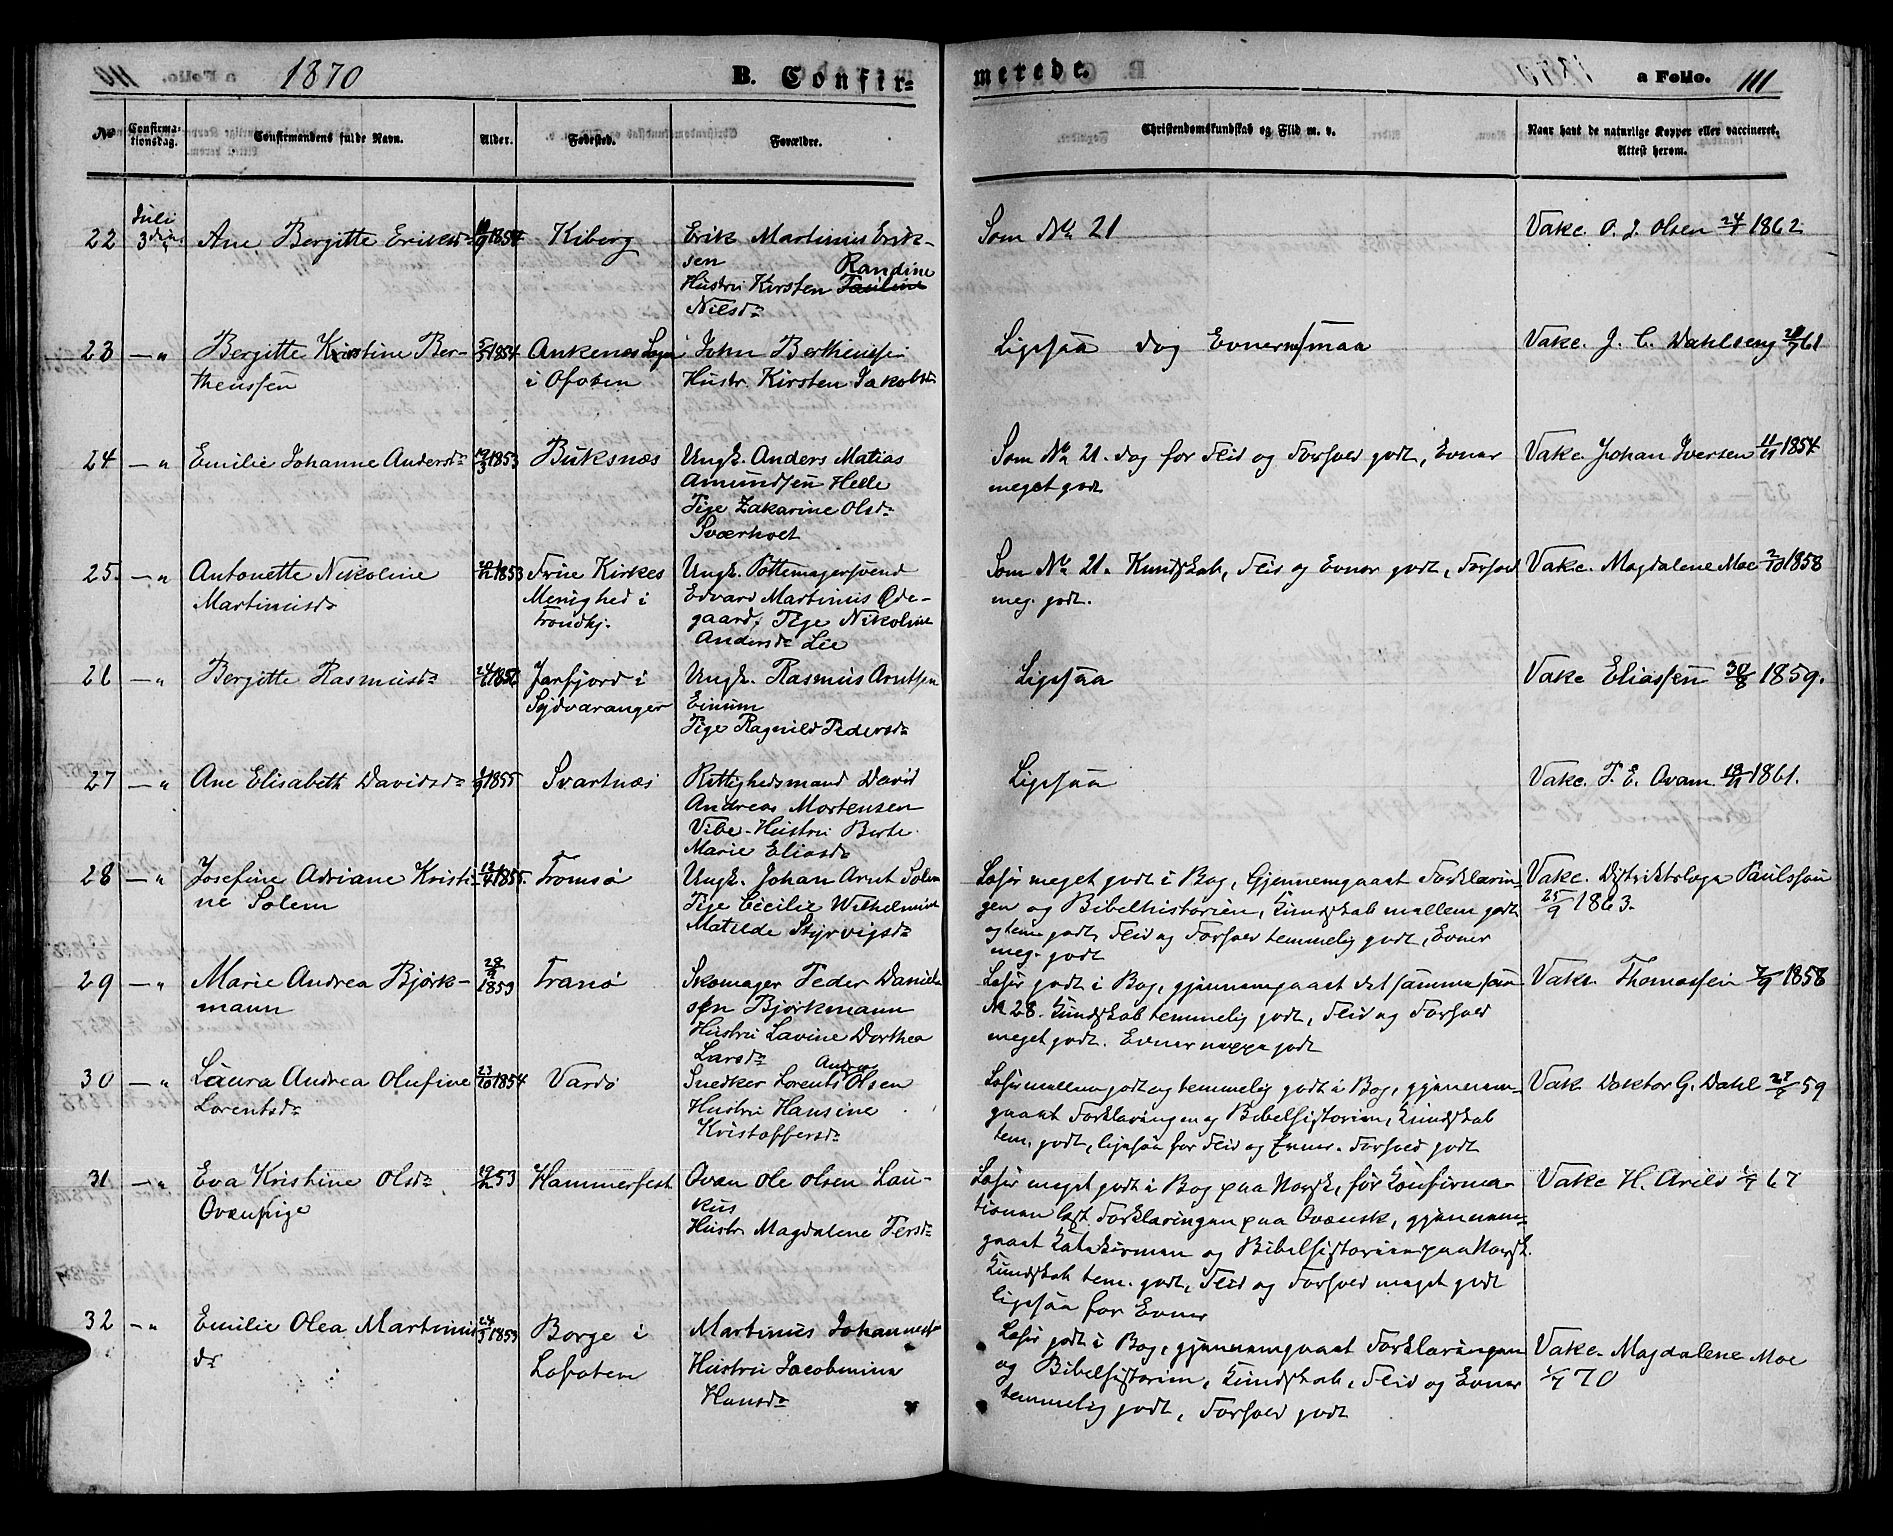 1870 B. Confir=
merede. a Folio. 111
No Confirma-tionsdag. Confirmandens fulde Navn. Alder. Fødested. Forældre.
Christendomskundskab og Flid m. v. Naar havt de naturlige Kopper eller vaccineret.
Attest herom.
Juli
22 3die Ane Bergitte Eriksdr 1854 Kiberg Erik Martinius Erik-
sen Randine
Hustru Kirsten
Nilsdr
Som No 21 Vakc. O. J. Olsen 24/7 1862
23 — " Bergitte Kirstine Ber- 5/5 1854 Ankenes Sogn John Bertheussen
theussen i Ofoten Hustr. Kirsten Jakobsdr
Ligesaa dog Evner smaa Vakc. J. C. Dahlseng 61
24 — " Emilie Johanne Andersdr 1853 Buksnæs Ungk. Anders Matias
Amundsen Helle
Pige Zakarine Olsdr
Sværholt
Som No 21. dog for Flid og Forhold godt, Evner Vakc. Johan Iversen 11/11 1854
meget godt
25. — " Antonette Nikoline 1853 Frue Kirkes Ungk. Pottemagersvend
Martinusdr Menighed i Edvard Martinus Øde-
Trondhj. gaard, Pige Nikoline
Andersdr Lie
Som No 21. Kundskab, Flid og Evner godt, Forhold Vakc. Magdalene Moe 2/10 1858
meg. godt.
26 — " Bergitte Rasmusdr Jarfjord i Ungk. Rasmus Arntsen
Sydvaranger Einum
Pige Ragnild Pedersdr
Ligesaa Vakc Eliassen 30/8 1859.
27 — " Ane Elisabeth Davidsdr 1855 Svartnæs Rettighedsmand David
Andreas Mortensen
Vibe - Hustru Berte
Marie Eliasdr
Ligesaa Vakc. P. E. Qvam 1861.
28 — " Josefine Adriane Kristi- 1855. Tromsø Ungk. Johan Arnt Solem
ne Solem Pige Cecilie Wilhelmine
Matilde Styrvigsdr
Læser meget godt i Bog, Gjennemgaaet Forklarin- Vakc. Distriktslæge Paulsson
gen og Bibelhistorien, Kundskab mellem godt 25/9 1863.
og tem. godt, Flid og Forhold temmelig godt, Evner
meg. godt
29 — " Marie Andrea Bjørk- 1853 Tranø Skomager Peder Daniel-
mann sen Bjørkmann
Hustru Lavine Dorthea
Larsdr
Læser godt i Bog, gjennemgaaet det samme som Vakc. Thomassen 1858
No 28. Kundskab temmelig godt, Flid og Forhold
meget godt. Evner neppe godt
30 — " Laura Andrea Olufine 23/10 1854 Vardø Snedker Lorents Andreas Olsen
Lorentsdr Hustru Hansine
Kristoffersdr
Læser mellem godt og temmelig godt i Bog, gjennem- Vak. Doktor G. Dahl 59
gaaet Forklaringen og Bibelhistorien, Kundskab
tem. godt, ligesaa for Flid og Evner. Forhold godt
31 — " Eva Kristine Olsdr 53 Hammerfest Qvæn Ole Olsen Lau-
Qvænpige kus
Hustr Magdalene Persdr
Læser meget godt i Bog paa Norsk, før Konfirma- Vakc H. Arild 1/7 67
tionen læst Forklaringen paa Qvænsk, gjennem-
gaaet Katekismen og Bibelhistorien paa Norsk.
Kundskab tem. godt, Flid og Forhold meget godt
ligesaa for Evner
32 — " Emilie Olea Martinus 1853 Borge i Martinus Johannessen
dr Lofoten Hustru Jacobmina
Hansdr
Læser godt i Bog, gjennemgaaet Forklaringen Vakc. Magdalene Moe
og Bibelhistorien, Kundskab, Flid og Evner 1/7 70
temmelig godt, Forhold godt